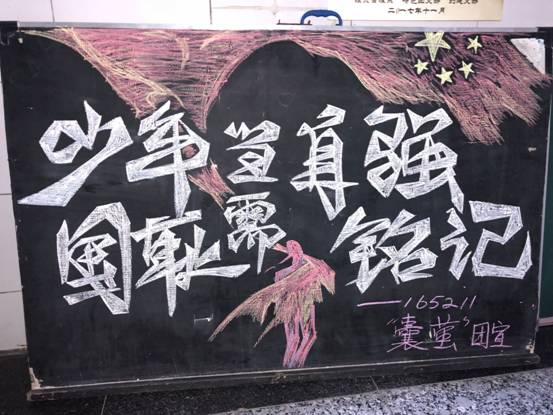 二〇一七年十一月
少年当自强
国耻需铭记
——165211
“囊萤”团宣